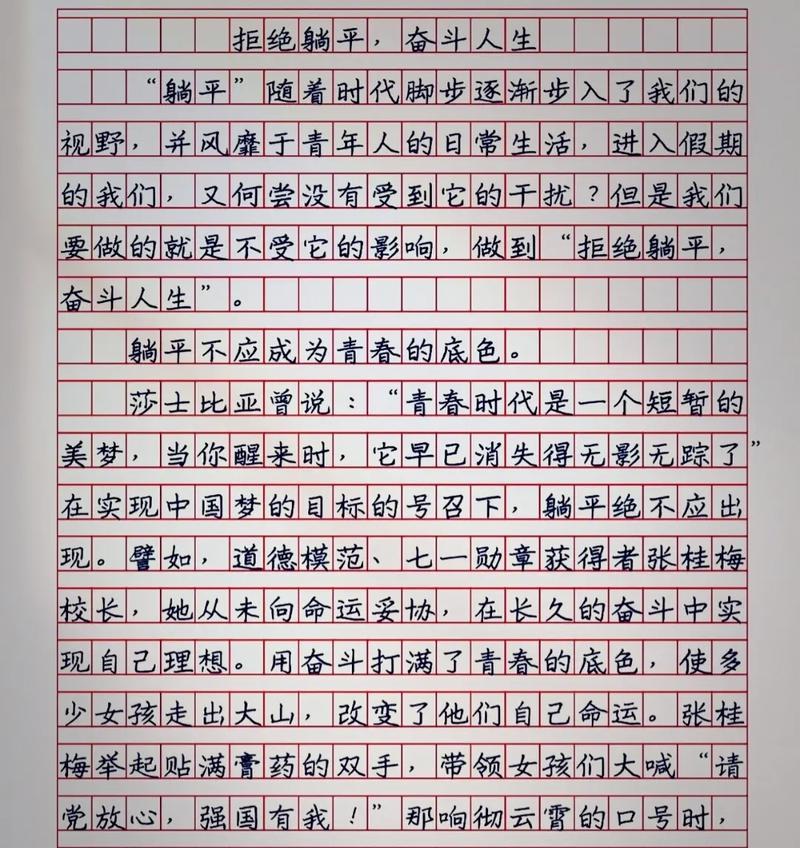 拒绝躺平，奋斗人生
“躺平”随着时代脚步逐渐步入了我们的
视野，并风靡于青年人的日常生活，进入假期
的我们，又何尝没有受到它的干扰？但是我们
要做的就是不受它的影响，做到“拒绝躺平，
奋斗人生”。
躺平不应成为青春的底色。
莎士比亚曾说：“青春时代是一个短暂的
美梦，当你醒来时，它早已消失得无影无踪了”
在实现中国梦的目标的号召下，躺平绝不应出
现。譬如，道德模范、七一勋章获得者张桂梅
校长，她从未向命运妥协，在长久的奋斗中实
现自己理想。用奋斗打满了青春的底色，使多
少女孩走出大山，改变了他们自己命运。张桂
梅举起贴满膏药的双手，带领女孩们大喊“请
党放心，强国有我！”那响彻云霄的口号时，